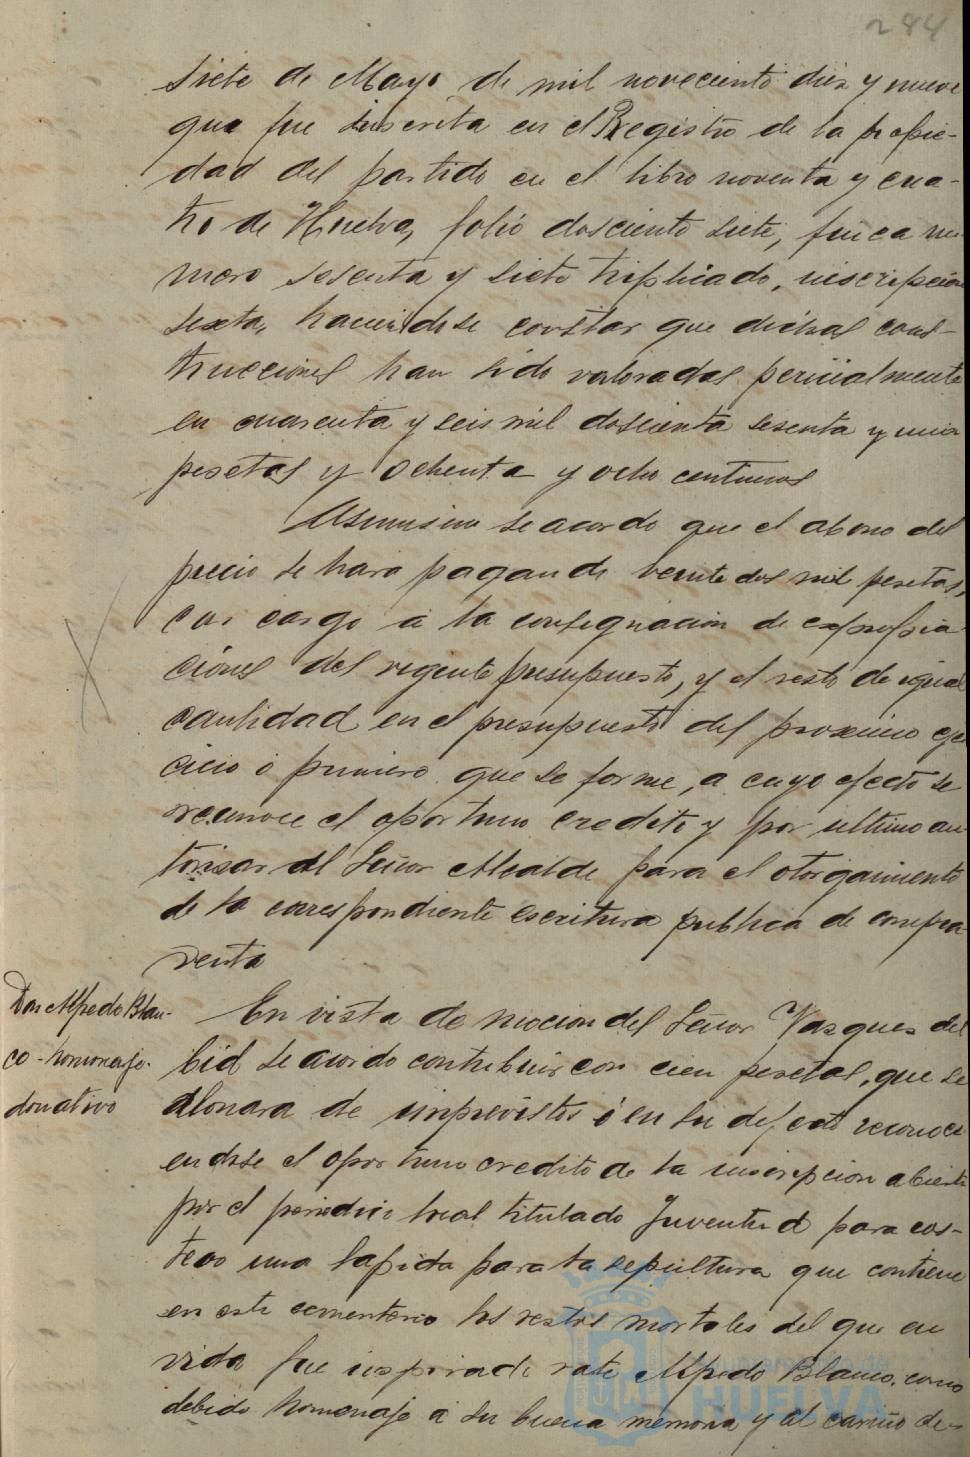 284
siete de Mayo de mil novecientos diez y nueve
que fue inscrita en el Registro de la propie-
dad del partido en el libro noventa y cua-
tro de Huelva, folio doscientos siete, finca nu-
mero sesenta y siete triplicado, inscripcion
sexta, haciendose constar que dichas cons-
trucciones han sido valoradas pericialmente
en cuarenta y seis mil doscientas sesenta y una
pesetas y ochenta y ocho centimos
Asimismo se acordo que el abono del
precio se hara pagando veinte dos mil pesetas,
con cargo a la consignacion de expropia
ciones del vigente presupuesto, y el resto de igual
cantidad en el presupuesto del proximo eje
cicio ó primero que se forme, a cuyo efecto se
reconoce el oportuno credito y por ultimo au
torisar al Señor Alcalde para el otorgamiento
de la correspondiente escritura publica de compra
venta
Don Alfredo Blan-
co - homenaje-
donativo
En vista de mocion del Señor Vazquez del
Cid se acordo contribuir con cien pesetas, que se
abonara de imprevistos ó en su defecto reconoci
endose el oportuno credito de la suscripcion abierta
por el periodico local titulado Juventud para cos-
tear una lapida para la sepultura que contiene
en este cementerio los restos mortales del que en
vida fue inspirado vate Alfredo Blanco, como
debido homenaje á su buena memoria y al cariño de-
Ayuntamiento de
HUELVA